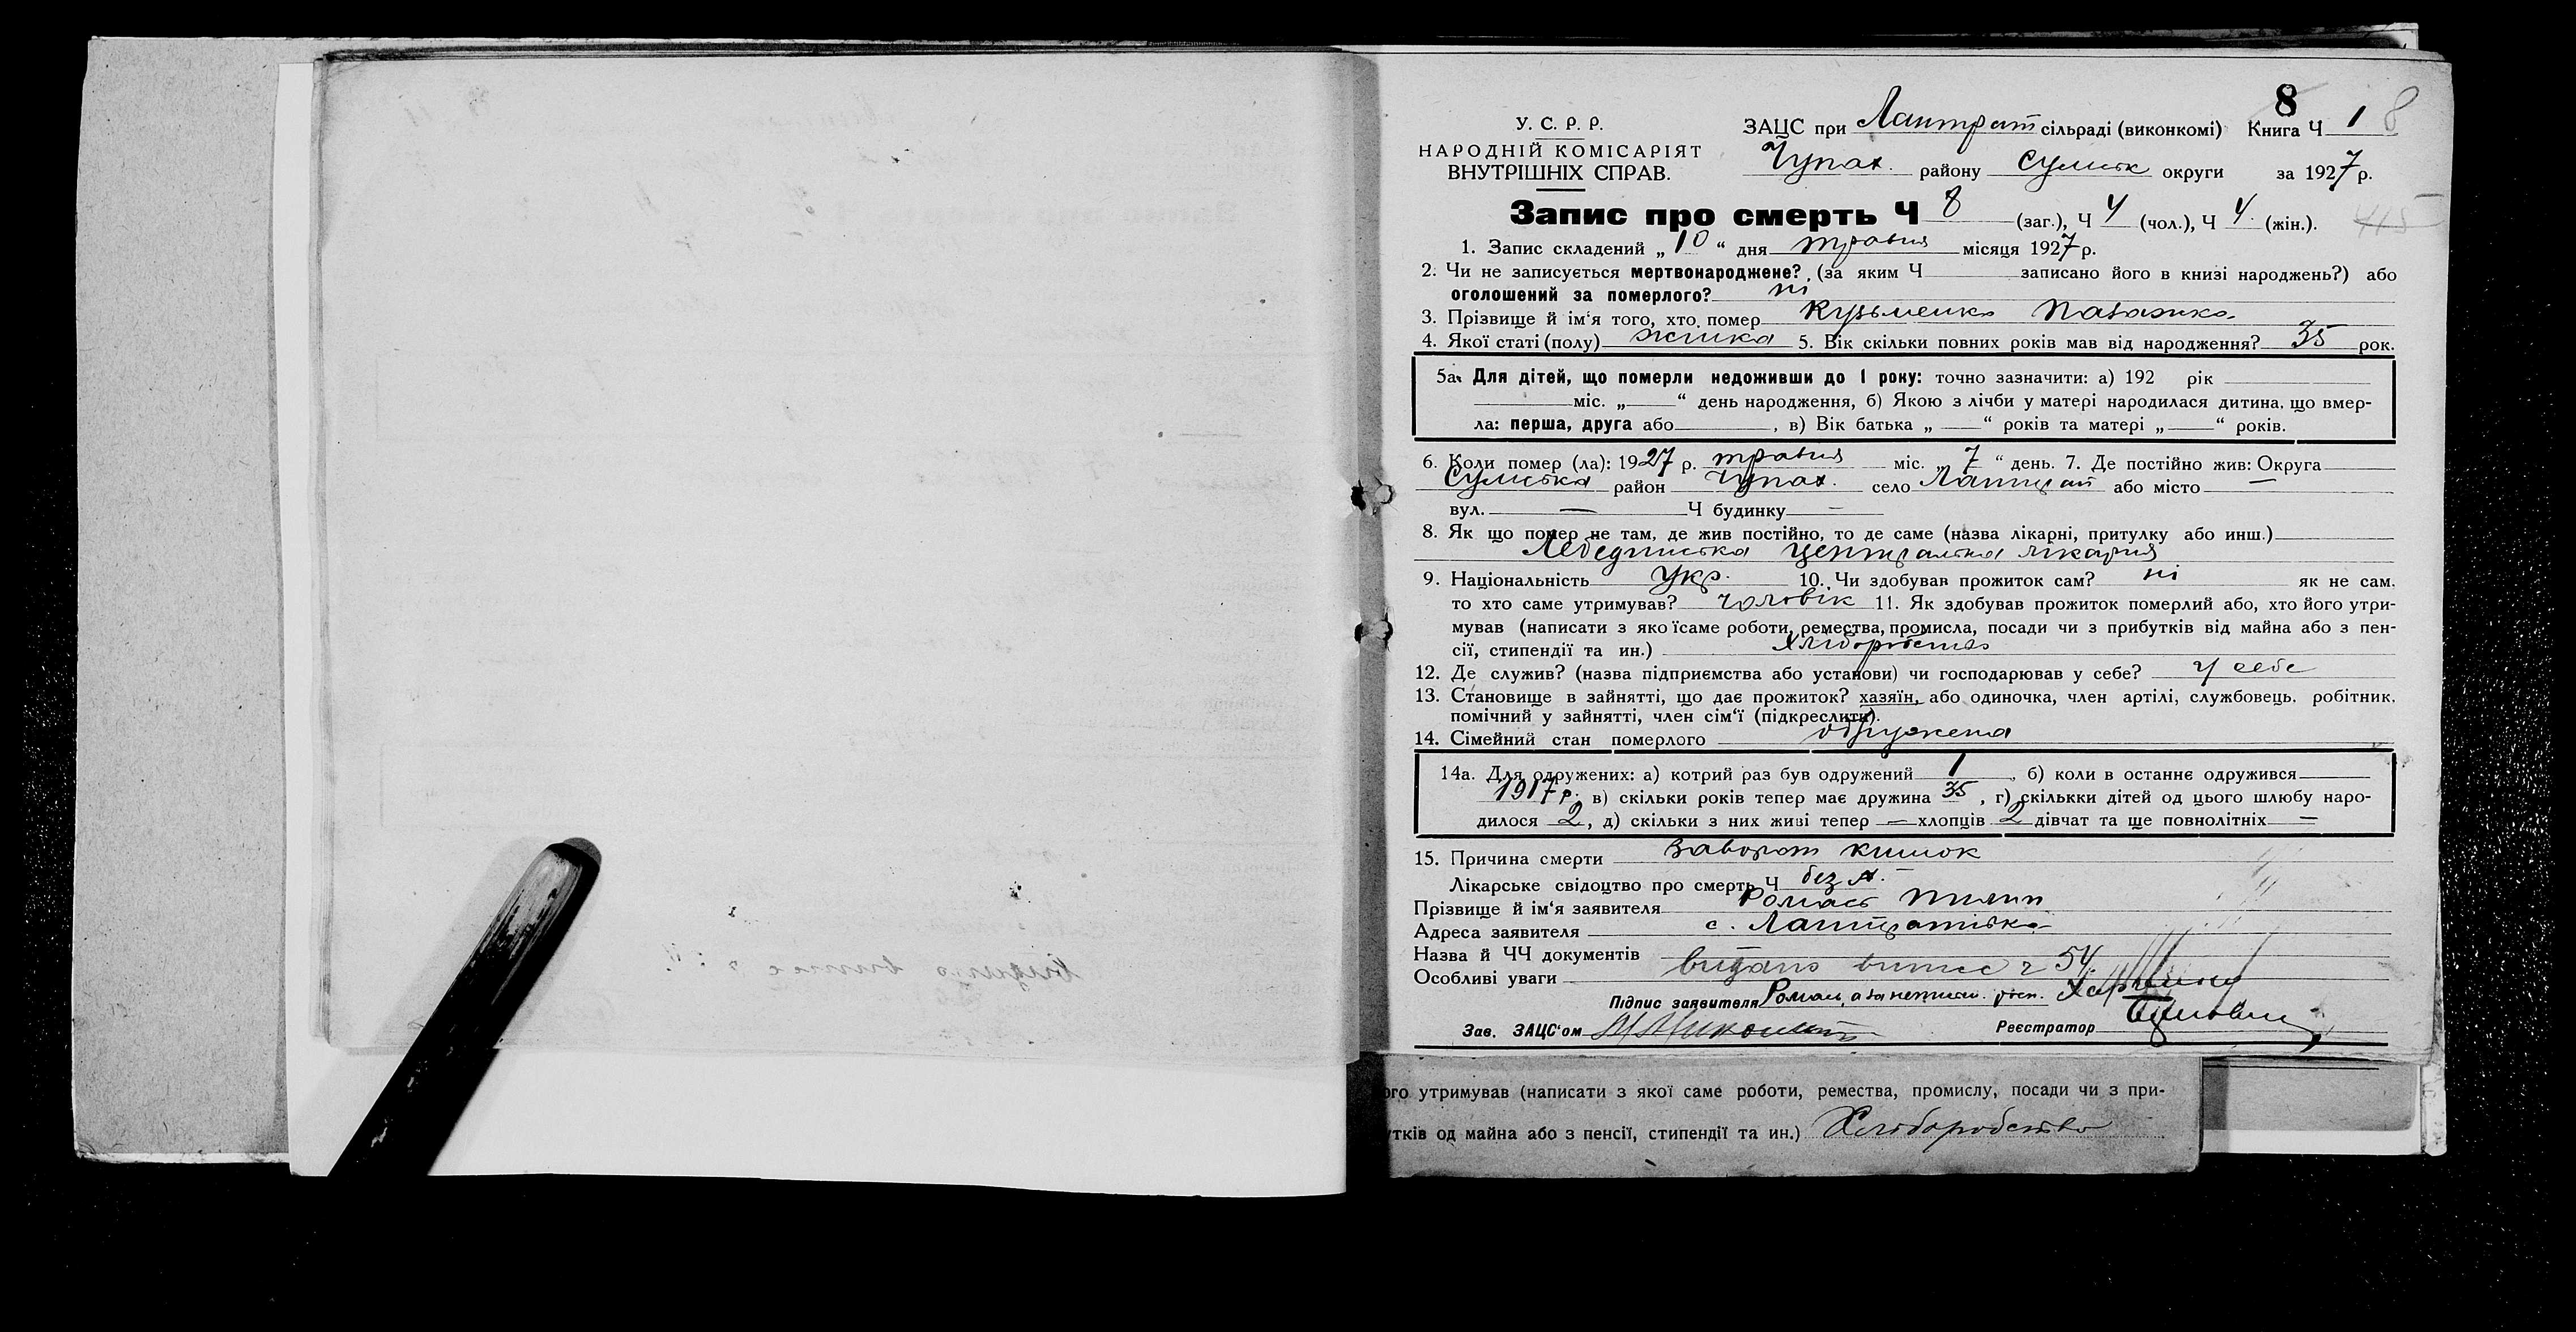 8
У. С. Р. Р.
НАРОДНІЙ КОМІСАРІЯТ
ВНУТРІШНІХ СПРАВ.
ЗАЦС при Лантрат сільраді (виконкомі) Книга Ч 1 8
Чупах. району Сумськ округи за 1927 р.
Запис про смерть Ч 8 (заг.), Ч 4 (чол.), Ч 4 (жін.).
1. Запис складений „10“ дня травня місяця 1927 р.
2. Чи не записується мертвонароджене? (за яким Ч записано його в книзі народжень?) або
оголошений за померлого? ні
3. Прізвище й ім'я того, хто помер Кузьменко Палажка
4. Якої статі (полу) жінка 5. Вік скільки повних років мав від народження? 35 рок.
5а. Для дітей, що померли недоживши до 1 року: точно зазначити: а) 192 рік
міс. „ “ день народження, б) Якою з лічби у матері народилася дитина, що вмер-
ла: перша, друга або , в) Вік батька „ “ років та матері „ “ років.
6. Коли помер (ла): 1927 р. травня міс. „7“ день. 7. Де постійно жив: Округа
Сумська район Чупах. село Лантрат або місто —
вул. — Ч будинку —
8. Як що помер не там, де жив постійно, то де саме (назва лікарні, притулку або инш.)
Лебединська центральна лікарня
9. Національність Укр. 10. Чи здобував прожиток сам? ні як не сам.
то хто саме утримував? чоловік 11. Як здобував прожиток померлий або, хто його утри-
мував (написати з яко їсаме роботи, ремества, промисла, посади чи з прибутків від майна або з пен-
сії, стипендії та ин.) Хліборобство
12. Де служив? (назва підприємства або установи) чи господарював у себе? у себе
13. Становище в зайнятті, що дає прожиток? хазяїн, або одиночка, член артілі, службовець, робітник.
помічний у зайнятті, член сім'ї (підкреслити).
14. Сімейний стан померлого одружена
14а. Для одружених: а) котрий раз був одружений 1, б) коли в останнє одружився
1917 р. в) скільки років тепер має дружина 35, г) скількки дітей од цього шлюбу наро-
дилося 2, д) скільки з них живі тепер — хлопців 2 дівчат та ще повнолітніх —
15. Причина смерти Заворот кишок
Лікарське свідоцтво про смерть Ч без №
Прізвище й ім'я заявителя Ромась Пилип
Адреса заявителя с. Лантратівка
Назва й ЧЧ документів
Особливі уваги видано витяг ч 54.
Підпис заявителя Ромась, а за неписм. росп.
Зав. ЗАЦС'ом Реєстратор
ого утримував (написати з якої саме роботи, ремества, промислу, посади чи з при-
утків од майна або з пенсії, стипендії та ин.) Хліборобство